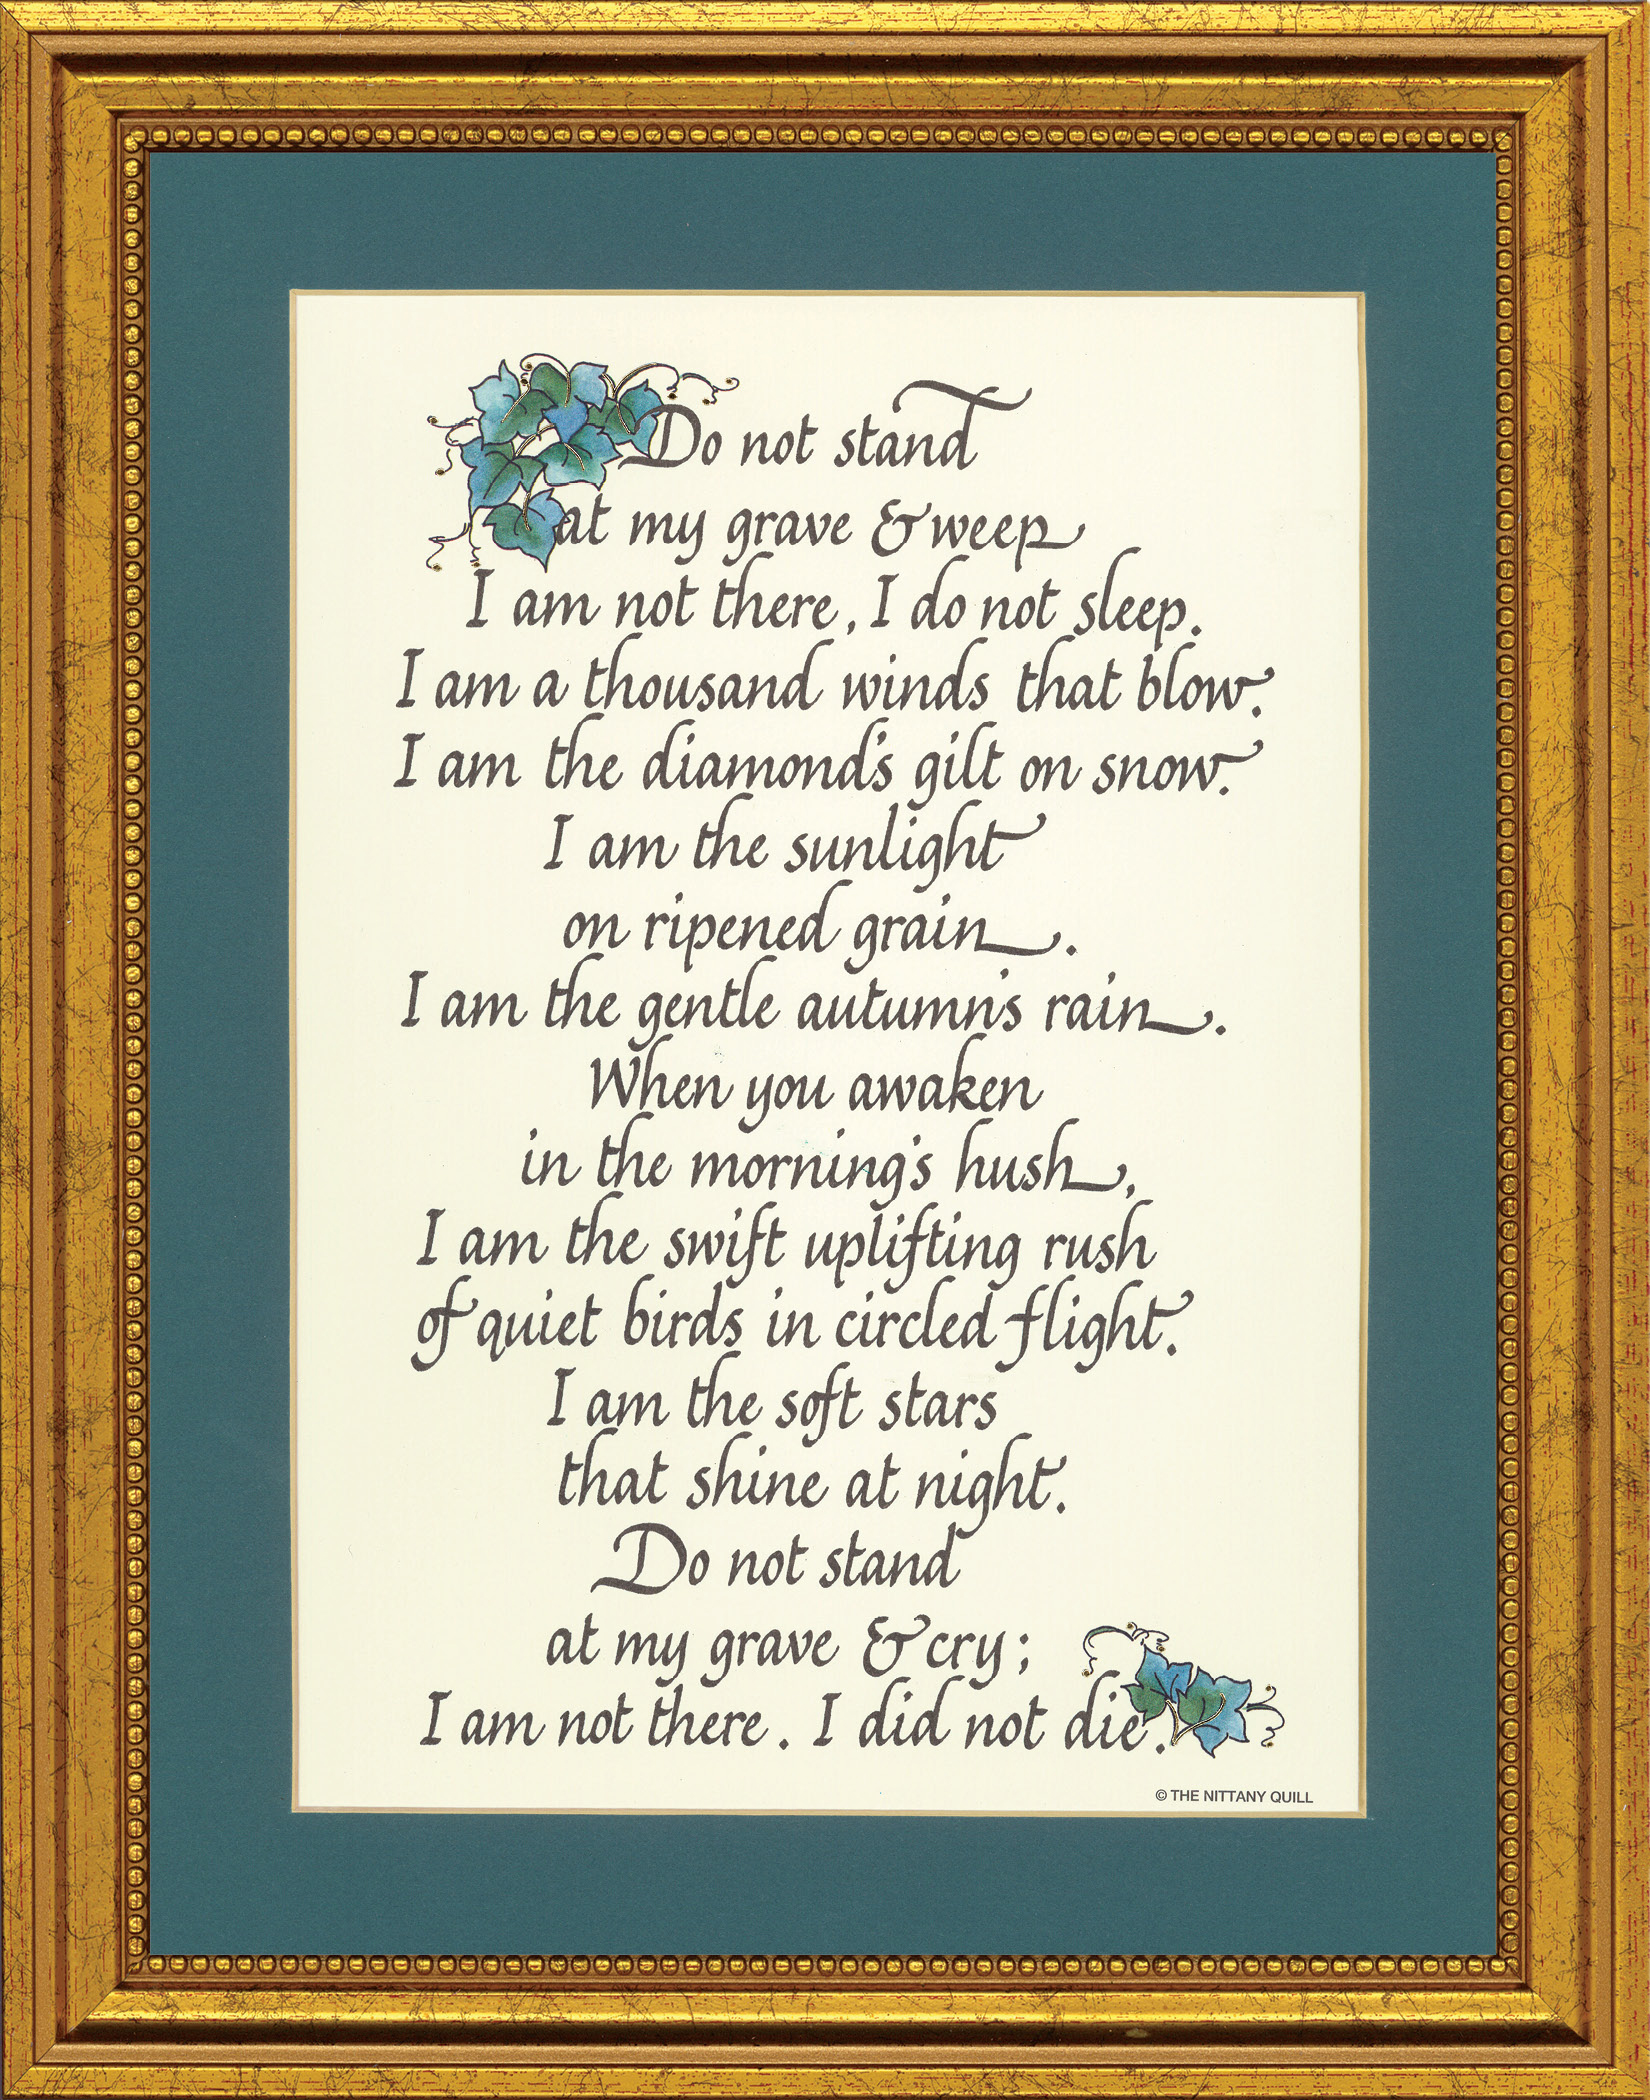 Do not stand
at my grave & weep
I am not there, I do not sleep.
I am a thousand winds that blow.
I am the diamond's gilt on snow.
I am the sunlight
on ripened grain.
I am the gentle autumn's rain.
When you awaken
in the morning's hush,
I am the swift uplifting rush
of quiet birds in circled flight.
I am the soft stars
that shine at night.
Do not stand
at my grave & cry;
I am not there. I did not die.
© THE NITTANY QUILL